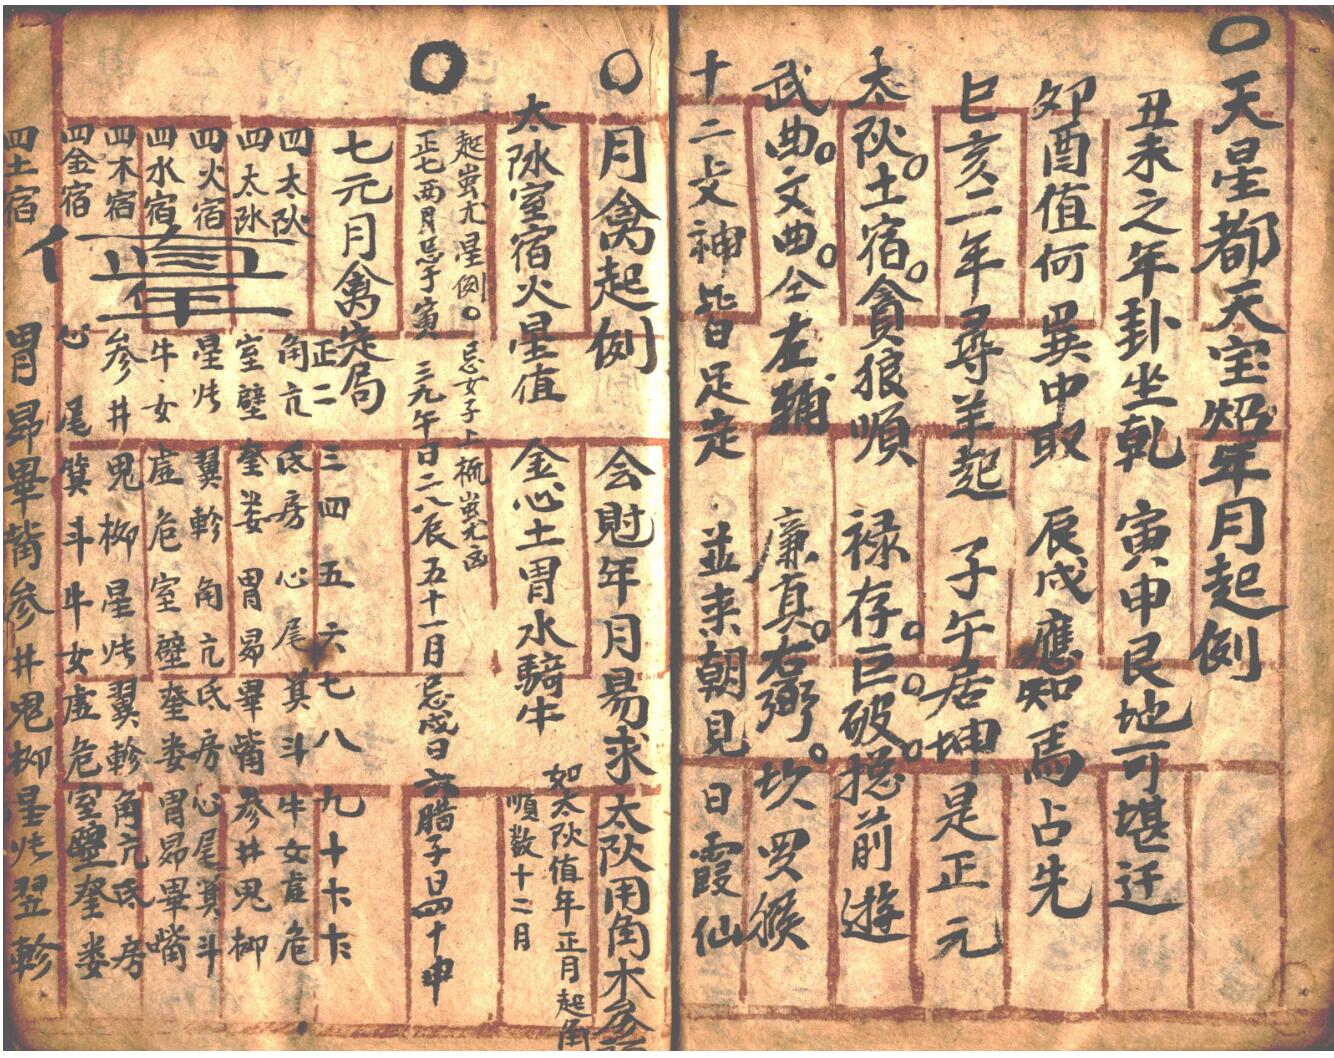 〇天星都天宝炤年月起例
丑未之年卦坐乾 寅申艮地可堪迁
卯酉值何巽中取 辰戌應知馬占先
巳亥二年尋羊起 子午居坤是正元
太阦。土宿。貪狼順 禄存。巨。破。捴前遊
武曲。文曲。仝左輔 廉真。右弼。坎罗候
十二攴神皆足定 並来朝見日霞仙
〇月禽起例 会尅年月易求太阦用角木房
太阥室宿火星值 金心土胃水騎牛
如太阦值年正月起角
順数十二月
〇起蚩尤星例。忌女子上梳蚩尤凶
正七两月忌于寅 三九午日二八辰 五十一月忌戌日 六腊子日四十申
七元月禽定局
正二三四五六七八九十
四太阦 角亢氐房心尾箕斗牛女虚危
四太阥 室壁奎娄胃昴畢嘴参井鬼柳
四火宿 星张翼軫角亢氐房心尾箕斗
四水宿 牛女虚危室壁奎娄胃昴畢嘴
四木宿 参井鬼柳星张翼軫角亢氐房
四金宿 心尾箕斗牛女虚危室壁奎娄
四土宿 胃昴畢嘴参井鬼柳星张翌軫
值年